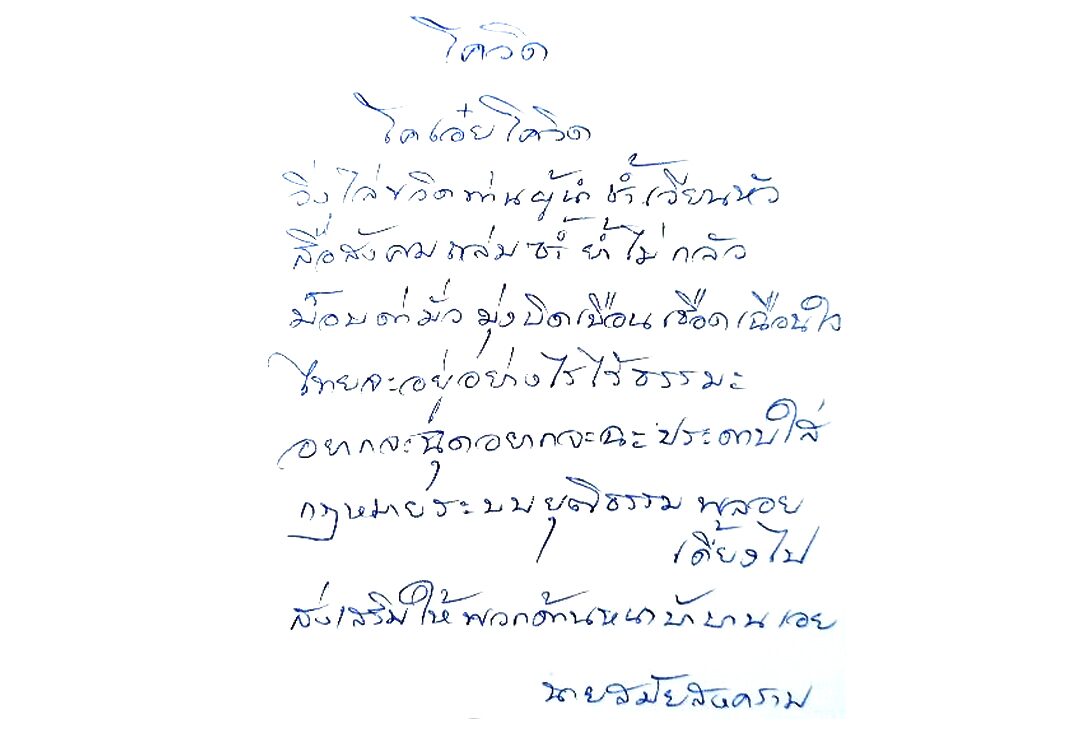 โควิด
โคเอ๋ยโควิด
วิ่งไล่ขวิดท่านผู้นำช้ำเวียนหัว
สื่อสังคมถล่มซ้ำย้ำไม่กลัว
ม็อบต่ำมั่วมุ่งบิดเบือนเชือดเฉือนใจ
ไทยจะอยู่อย่างไรไร้ธรรมะ
อยากจะฉุดอยากจะฉะประดาบใส่
กฎหมายระบบยุติธรรมพลอย
เดี้ยงไป
ส่งเสริมให้พวกด้านหน้าบ้าบานเอย
นายสมัยสงคราม